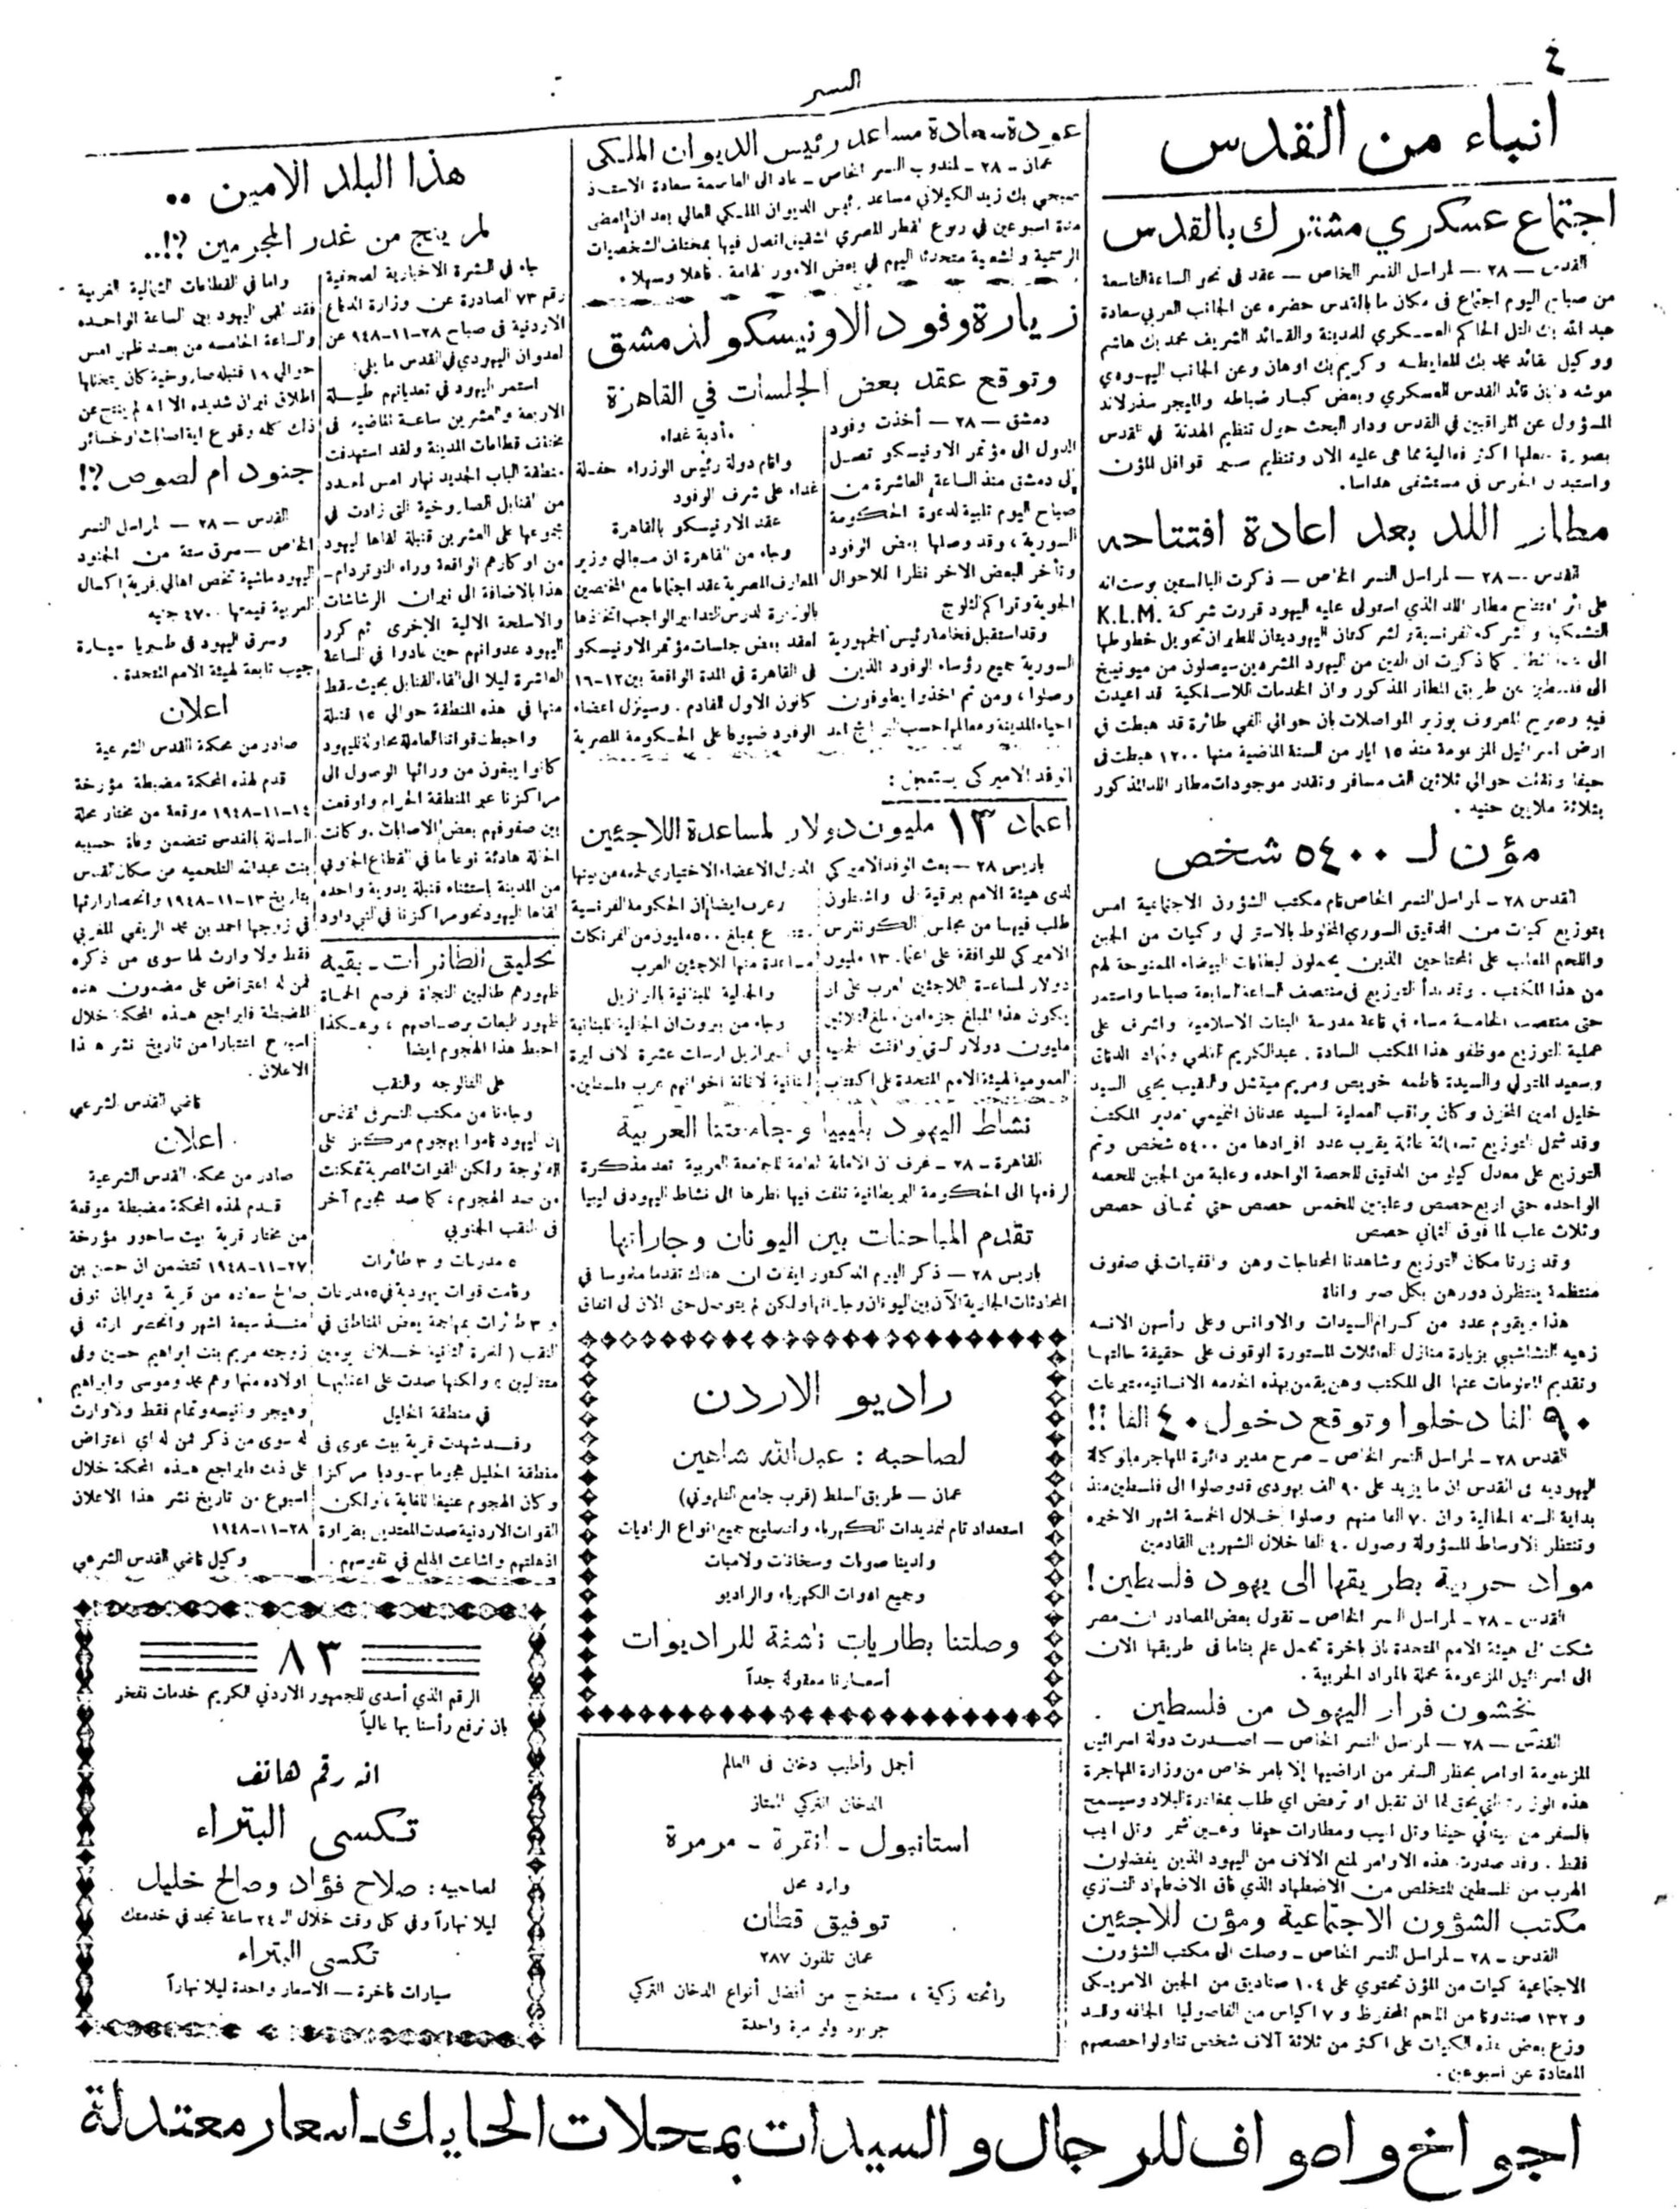 ٤
النسر
انباء من القدس
اجتماع عسكري مشترك بالقدس
القدس — ٢٨ — لمراسل النسر الخاص — عقد في نحو الساعة التاسعة
من صباح اليوم اجتماع في مكان ما بالقدس حضره عن الجانب العربي سعادة
عبد الله بك التل الحاكم العسكري للمدينة والقائد الشريف محمد بك هاشم
ووكيل القائد محمد بك المعايطه وكريم بك اوهان وعن الجانب اليهودي
موشه دايان قائد القدس العسكري وبعض كبار ضباطه والميجر سذرلاند
المسؤول عن المراقبين في القدس ودار البحث حول تنظيم الهدنة في القدس
بصورة تجعلها اكثر فعالية مما هي عليه الان وتنظيم سير قوافل المؤن
واستبدال الحرس في مستشفى هداسا.
مطار اللد بعد اعادة افتتاحه
القدس — ٢٨ — لمراسل النسر الخاص — ذكرت البالستين بوست انه
على اثر افتتاح مطار اللد الذي استولى عليه اليهود قررت شركة K.L.M.
التشيكية وشركة الفرنسية والشركتان اليهوديتان للطيران تحويل خطوطها
الى هذا المطار كما ذكرت ان الفين من اليهود المشردين سيصلون من ميونيخ
الى فلسطين عن طريق المطار المذكور وان الخدمات اللاسلكية قد اعيدت
فيه وصرح المعروف بوزير المواصلات بان حوالي الفي طائرة قد هبطت في
ارض اسرائيل المزعومة منذ ١٥ ايار من السنة الماضية منها ١٢٠٠ هبطت في
حيفا ونقلت حوالي ثلاثين الف مسافر وتقدر موجودات مطار اللد المذكور
بثلاثة ملايين جنيه .
مؤن لـ ٥٤٠٠ شخص
القدس ٢٨ — لمراسل النسر الخاص قام مكتب الشؤون الاجتماعية امس
بتوزيع كميات من الدقيق السوري المخلوط بالاسترالي وكميات من الجبن
واللحم المعلب على المحتاجين الذين يحملون البطاقات البيضاء الممنوحة لهم
من هذا المكتب . وقد بدأ التوزيع في منتصف الساعة السابعة صباحا واستمر
حتى منتصف الخامسة مساء في قاعة مدرسة البنات الاسلامية واشرف على
عملية التوزيع موظفو هذا المكتب السادة . عبدالكريم العلمي ونهاد الدقاق
وسعيد المتولي والسيدة فاطمه خويص ومريم ميتشل والنقيب يحيى السيد
خليل امين المخزن وكان يراقب العملية السيد عدنان التميمي مدير المكتب
وقد شمل التوزيع تسعمائة عائلة يقرب عدد افرادها من ٥٤٠٠ شخص وتم
التوزيع على معدل كيلو من الدقيق للحصة الواحده وعلبة من الجبن للحصه
الواحده حتى اربع حصص وعلبتين للخمس حصص حتى ثماني حصص
وثلاث علب لما فوق الثماني حصص
وقد زرنا مكان التوزيع وشاهدنا المحتاجات وهن واقفيات في صفوف
منتظمة ينتظرن دورهن بكل صبر واناة
هذا ويقوم عدد من كرام السيدات والاوانس وعلى رأسهن الانسه
زهيه النشاشيبي بزيارة منازل العائلات المستورة الوقوف على حقيقة حالتها
وتقديم المعلومات عنها الى المكتب وهن يقمن بهذه الخدمه الانسانيه متبرعات
٩٠ الفا دخلوا وتوقع دخول ٤٠ الفا !!
القدس ٢٨ — لمراسل النسر الخاص — صرح مدير دائرة المهاجره بالوكالة
اليهوديه في القدس ان ما يزيد على ٩٠ الف يهودي قد وصلوا الى فلسطين منذ
بداية السنه الحالية وان ٧٠ الفا منهم وصلوا خلال الخمسة اشهر الاخيره
وتنتظر الاوساط المسؤولة وصول ٤٠ الفا خلال الشهرين القادمين
مواد حربية بطريقها الى يهود فلسطين !
القدس — ٢٨ — لمراسل النسر الخاص — تقول بعض المصادر ان مصر
شكت الى هيئة الامم المتحدة بان باخرة تحمل علم بناما في طريقها الان
الى اسرائيل المزعومة محملة بالمواد الحربية .
يخشون فرار اليهود من فلسطين .
القدس — ٢٨ — لمراسل النسر الخاص — اصدرت دولة اسرائيل
المزعومة اوامر بحظر السفر من اراضيها إلا بامر خاص من وزارة المهاجرة
هذه الوزارة التي يحق لها ان تقبل او ترفض اي طلب بمغادرة البلاد وسيسمح
بالسفر من مينائي حيفا وتل ابيب ومطارات حيفا وعين شمر وتل ابيب
فقط . وقد صدرت هذه الاوامر لمنع الالاف من اليهود الذين يفضلون
الهرب من فلسطين للتخلص من الاضطهاد الذي فاق الاضطهاد النازي
مكتب الشؤون الاجتماعية ومؤن للاجئين
القدس — ٢٨ — لمراسل النسر الخاص — وصلت الى مكتب الشؤون
الاجتماعية كميات من المؤن تحتوي على ١٠٤ صناديق من الجبن الامريكي
و ١٣٢ صندوقا من اللحم المحفوظ و ٧ اكياس من الفاصوليا الجافه وقد
وزع بعض هذه الكميات على اكثر من ثلاثة آلاف شخص تناولوا حصصهم
المعتادة عن اسبوعين .
عودة سعادة مساعد رئيس الديوان الملكي
عمان — ٢٨ — لمندوب النسر الخاص — عاد الى العاصمة سعادة الاستاذ
صبحي بك زيد الكيلاني مساعد رئيس الديوان الملكي العالي بعد ان امضى
مدة اسبوعين في ربوع القطر المصري الشقيق اتصل فيها بمختلف الشخصيات
الرسمية والشعبية متحدثا اليهم في بعض الامور الهامة . فاهلا وسهلا .
زيارة وفود الاونيسكو لدمشق
وتوقع عقد بعض الجلسات في القاهرة
دمشق — ٢٨ — أخذت وفود
الدول الى مؤتمر الاونيسكو تصل
الى دمشق منذ الساعة العاشرة من
صباح اليوم تلبية لدعوة الحكومة
السورية ، وقد وصلها بعض الوفود
وتأخر البعض الاخر نظرا للاحوال
الجوية وتراكم الثلوج
وقد استقبل فخامة رئيس الجمهورية
السورية جميع رؤساء الوفود الذين
وصلوا ، ومن ثم اخذوا يطوفون
احياء المدينة ومعالمها حسب البرامج المعد
مأدبة غداء
واقام دولة رئيس الوزراء حفلة
غداء على شرف الوفود
عقد الاونيسكو بالقاهرة
وجاء من القاهرة ان معالي وزير
المعارف المصرية عقد اجتماعا مع المختصين
بالوزارة لدرس التدابير الواجب اتخاذها
لعقد بعض جلسات مؤتمر الاونيسكو
في القاهرة في المدة الواقعة بين ١٢-١٦
كانون الاول القادم . وسينزل اعضاء
الوفود ضيوفا على الحكومة المصرية
الوفد الاميركي يستعجل :
اعتماد ١٣ مليون دولار لمساعدة اللاجئين
باريس ٢٨ — بعث الوفد الاميركي
لدى هيئة الامم برقية الى واشنطون
طلب فيها من مجلس الكونغرس
الاميركي للموافقة على اعتماد ١٣ مليون
دولار لمساعدة اللاجئين العرب على ان
يكون هذا المبلغ جزءا من مبلغ الثلاثين
مليون دولار التي وافقت الجمعية
العمومية لهيئة الامم المتحدة على اكتتاب
الدول الاعضاء الاختياري لجمعه من بينها
وعرب ايضا ان الحكومة الفرنسية
بمبلغ ٥٠٠ مليون من الفرنكات
مساعدة منها للاجئين العرب
والجالية اللبنانية بالبرازيل
وجاء من بيروت ان الجالية اللبنانية
في البرازيل ارسلت عشرة الاف ليرة
لبنانية لاغاثة اخوانهم عرب فلسطين.
نشاط اليهود بليبيا وجامعتنا العربية
القاهرة — ٢٨ — عرف ان الامانة العامة للجامعة العربية تعد مذكرة
لرفعها الى الحكومة البريطانية تلفت فيها نظرها الى نشاط اليهود في ليبيا
تقدم المباحثات بين اليونان وجاراتها
باريس ٢٨ — ذكر اليوم الدكتور ايفات ان هناك تقدما ملموسا في
المحادثات الجارية الآن بين اليونان وجاراتها ولكن لم يتوصل حتى الان الى اتفاق
راديو الاردن
لصاحبه : عبدالله شاهين
عمان — طريق السلط (قرب جامع التلهوني)
استعداد تام لتمديدات الكهرباء وتصليح جميع انواع الراديات
ولدينا صوبات وسخانات ولامبات
وجميع ادوات الكهرباء والراديو
وصلتنا بطاريات ناشفة للراديوات
أسعارنا معقولة جداً
أجمل وأطيب دخان في العالم
الدخان التركي الممتاز
استانبول — انقرة — مرمرة
وارد محل
توفيق قطان
عمان تلفون ٢٨٧
رائحته زكية ، مستخرج من أفضل أنواع الدخان التركي
جربوه ولو مرة واحدة
هذا البلد الامين ..
لم ينج من غدر المجرمين ؟!..
جاء في النشرة الاخبارية الصحفية
رقم ٧٣ الصادرة عن وزارة الدفاع
الاردنية في صباح ٢٨-١١-٩٤٨ عن
العدوان اليهودي في القدس ما يلي:
استمر اليهود في تعدياتهم طيلة
الاربعة والعشرين ساعة الماضيه في
مختلف قطاعات المدينة ولقد استهدفت
منطقة الباب الجديد نهار امس لعدد
من القنابل الصاروخية التي زادت في
مجموعها على العشرين قنبلة القاها اليهود
من اوكارهم الواقعة وراء النوتردام —
هذا بالاضافة الى نيران الرشاشات
والاسلحة الالية الاخرى ثم كرر
اليهود عدوانهم حين عادوا في الساعة
العاشرة ليلا الى القاء القنابل بحيث سقط
منها في هذه المنطقة حوالي ١٥ قنبلة
واحبطت قواتنا العاملة محاولة لليهود
كانوا يبغون من ورائها الوصول الى
مراكزنا عبر المنطقة الحرام واوقعت
بين صفوفهم بعض الاصابات . وكانت
الحالة هادئة نوعا ما في القطاع الجنوبي
من المدينة باستثناء قنبلة يدوية واحده
القاها اليهود نحو مراكزنا في النبي داود
تحليق الطائرات — بقيه
ظهورهم طالبين النجاة فرصع الحماة
ظهور الطيعات برصاصهم ، وهكذا
احبط هذا الهجوم ايضا
على الفالوجه والنقب
وجاءنا من مكتب النسر في القدس
ان اليهود قاموا بهجوم مركز على
الفالوجة ولكن القوات المصرية تمكنت
من صد الهجوم ، كما صد هجوم آخر
في النقب الجنوبي
٥ مدرعات و ٣ طائرات
وقامت قوات يهودية في ٥ مدرعات
و ٣ طائرات بمهاجمة بعض المناطق في
النقب ( للمرة الثانية خلال يومين
متتاليين ) ولكنها صدت على اعقابها
في منطقة الخليل
وقد شهدت قرية بيت عوى في
منطقة الخليل هجوما يهوديا مركزا
وكان الهجوم عنيفا للغاية ، ولكن
القوات الاردنية صدت المعتدين بضراوة
اذهلتهم واشاعت الهلع في نفوسهم .
واما في القطاعات الشمالية الغربية
فقد القى اليهود بين الساعة الواحده
والساعة الخامسه من بعد ظهر امس
حوالي ١٨ قنبلة صاروخية كان يتخللها
اطلاق نيران شديده الا انه لم ينتج عن
ذلك كله وقوع اية اصابات او خسائر
جنود ام لصوص ؟!
القدس — ٢٨ — لمراسل النسر
الخاص — سرق ستة من الجنود
اليهود ماشية تخص اهالي قرية إكسال
العربية قيمتها ٤٧٠٠ جنيه
وسرق اليهود في طبريا سيارة
جيب تابعة لهيئة الامم المتحدة .
اعلان
صادر من محكمة القدس الشرعية
قدم لهذه المحكمة مضبطة مؤرخة
١٤-١١-١٩٤٨ موقعة من مختار محلة
السلسلة بالقدس تتضمن وفاة حسيبه
بنت عبدالله التلحميه من سكان القدس
بتاريخ ١٣-١١-١٩٤٨ وانحصار ارثها
في زوجها احمد بن محمد الريفي المغربي
فقط ولا وارث لها سوى من ذكره
فمن له اعتراض على مضمون هذه
المضبطة فليراجع هذه المحكمة خلال
اسبوع اعتبارا من تاريخ نشر هذا
الاعلان .
قاضي القدس الشرعي
اعلان
صادر من محكمة القدس الشرعية
قدم لهذه المحكمة مضبطة موقعة
من مختار قرية بيت ساحور مؤرخة
٢٧-١١-١٩٤٨ تتضمن ان حسن بن
صالح سعاده من قرية ديرابان توفى
منذ سبعة اشهر وانحصر ارثه في
زوجته مريم بنت ابراهيم حسين وفي
اولاده منها وهم محمد وموسى وابراهيم
وهيجر وانيسه وتمام فقط ولا وارث
له سوى من ذكر فمن له اي اعتراض
على ذلك فليراجع هذه المحكمة خلال
اسبوع من تاريخ نشر هذا الاعلان
٢٨-١١-١٩٤٨
وكيل قاضي القدس الشرعي
٨٣
الرقم الذي أسدى للجمهور الاردني الكريم خدمات نفخر
بان نرفع رأسنا بها عالياً
انه رقم هاتف
تكسي البتراء
لصاحبيه : صلاح فؤاد وصالح خليل
ليلا نهاراً وفي كل وقت خلال الـ ٢٤ ساعة تجد في خدمتك
تكسي البتراء
سيارات فاخرة — الاسعار واحدة ليلا نهاراً
اجواخ واصواف للرجال والسيدات بمحلات الحايك - اسعار معتدلة